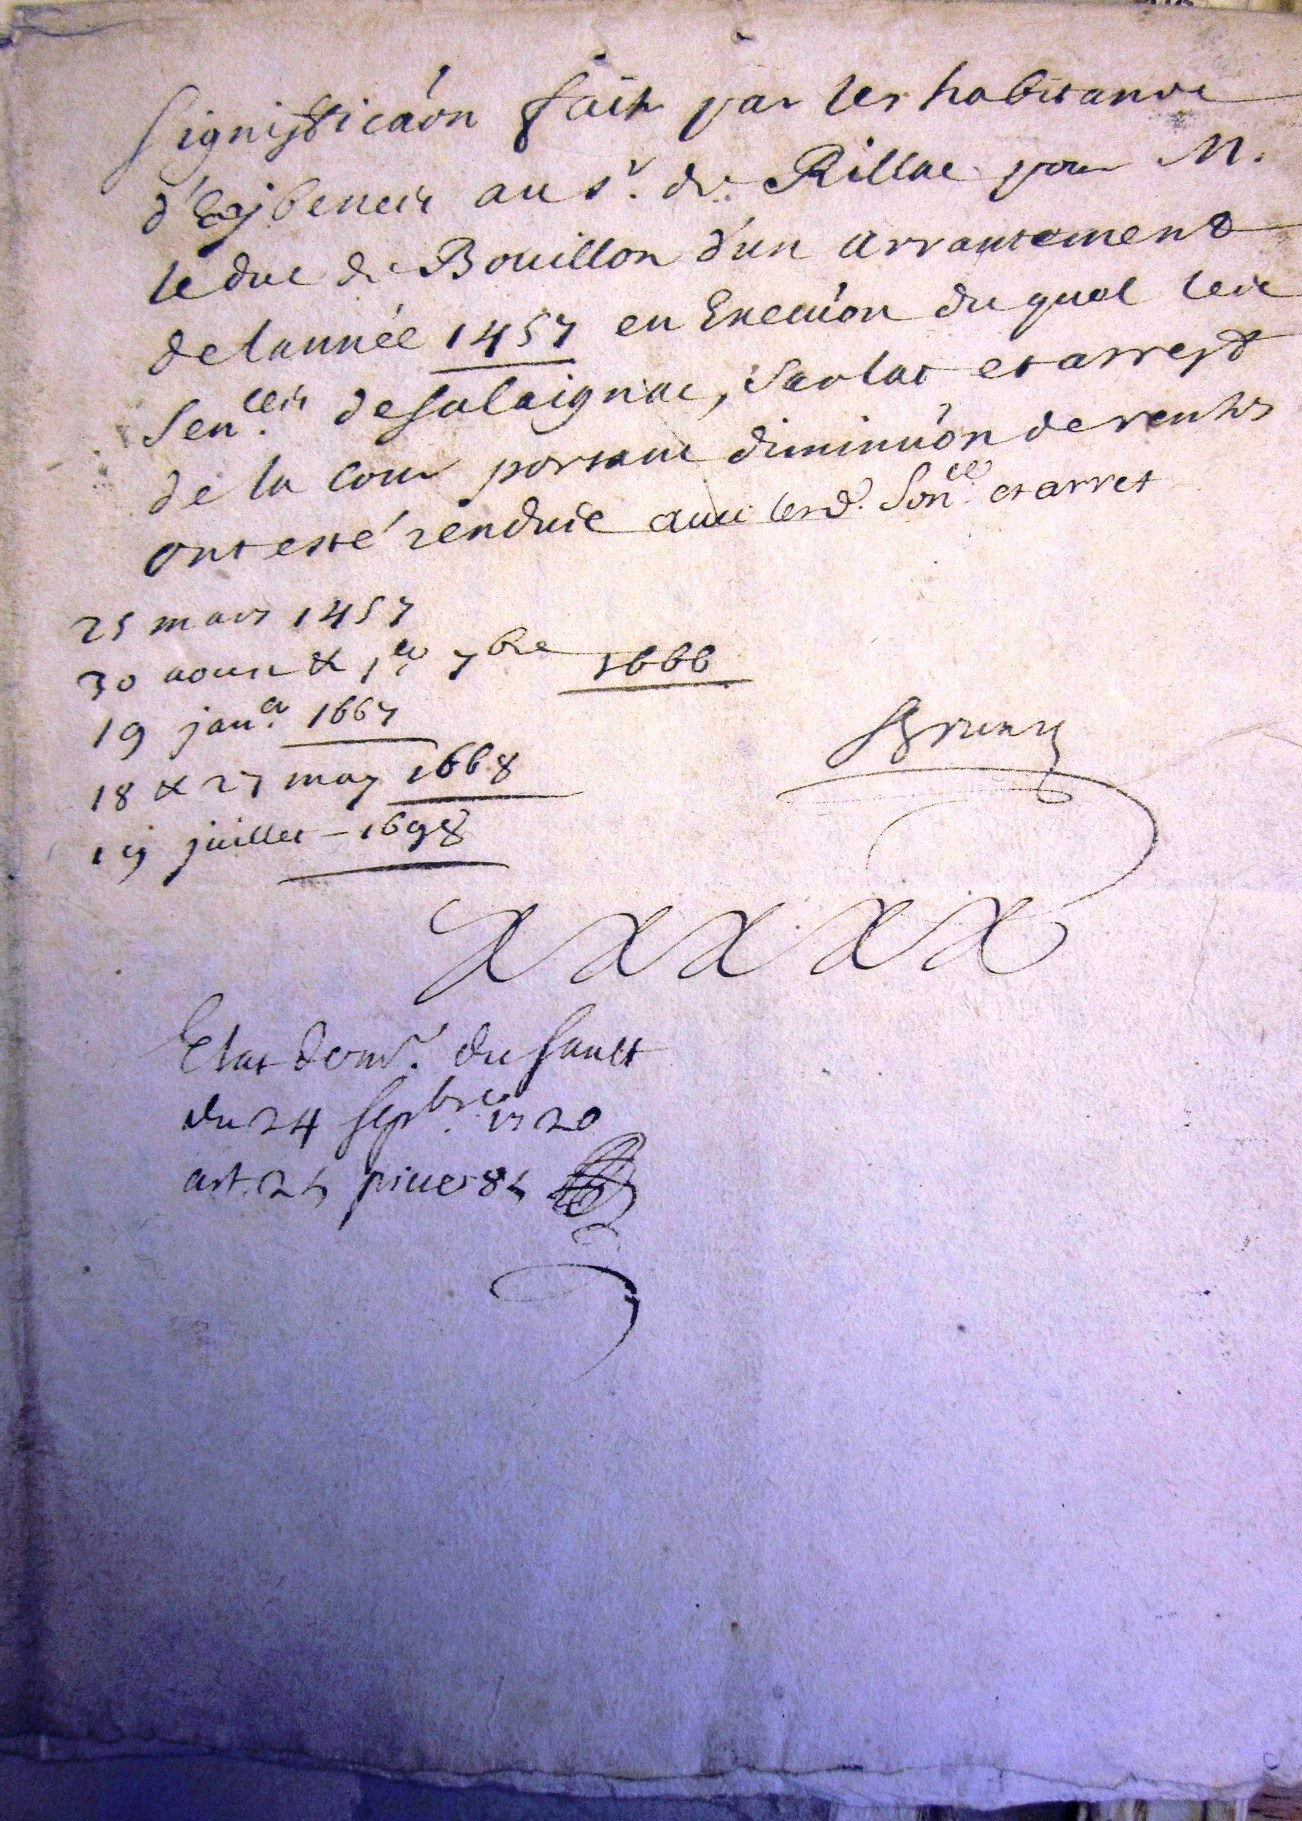 Signifficaôn fait par les habitans
d'Eybenes au sr. de Rillac pour M.
le duc de Bouillon d'un arrantement
de lannée 1457 en Execuôn du quel les
Sen.ces de Salaignac, Sarlat et arrest
de la Cour portant diminuôn de rentes
ont esté rendues avec lesd. Sen.ces et arret
25 mars 1457
30 aoust & 1er 7bre 1666
19 janer. 1667
18 & 27 may 1668
19 juillet - 1698
Etat de mr. du Sault
du 24 sepbre. 1720
art. 24 piece 84